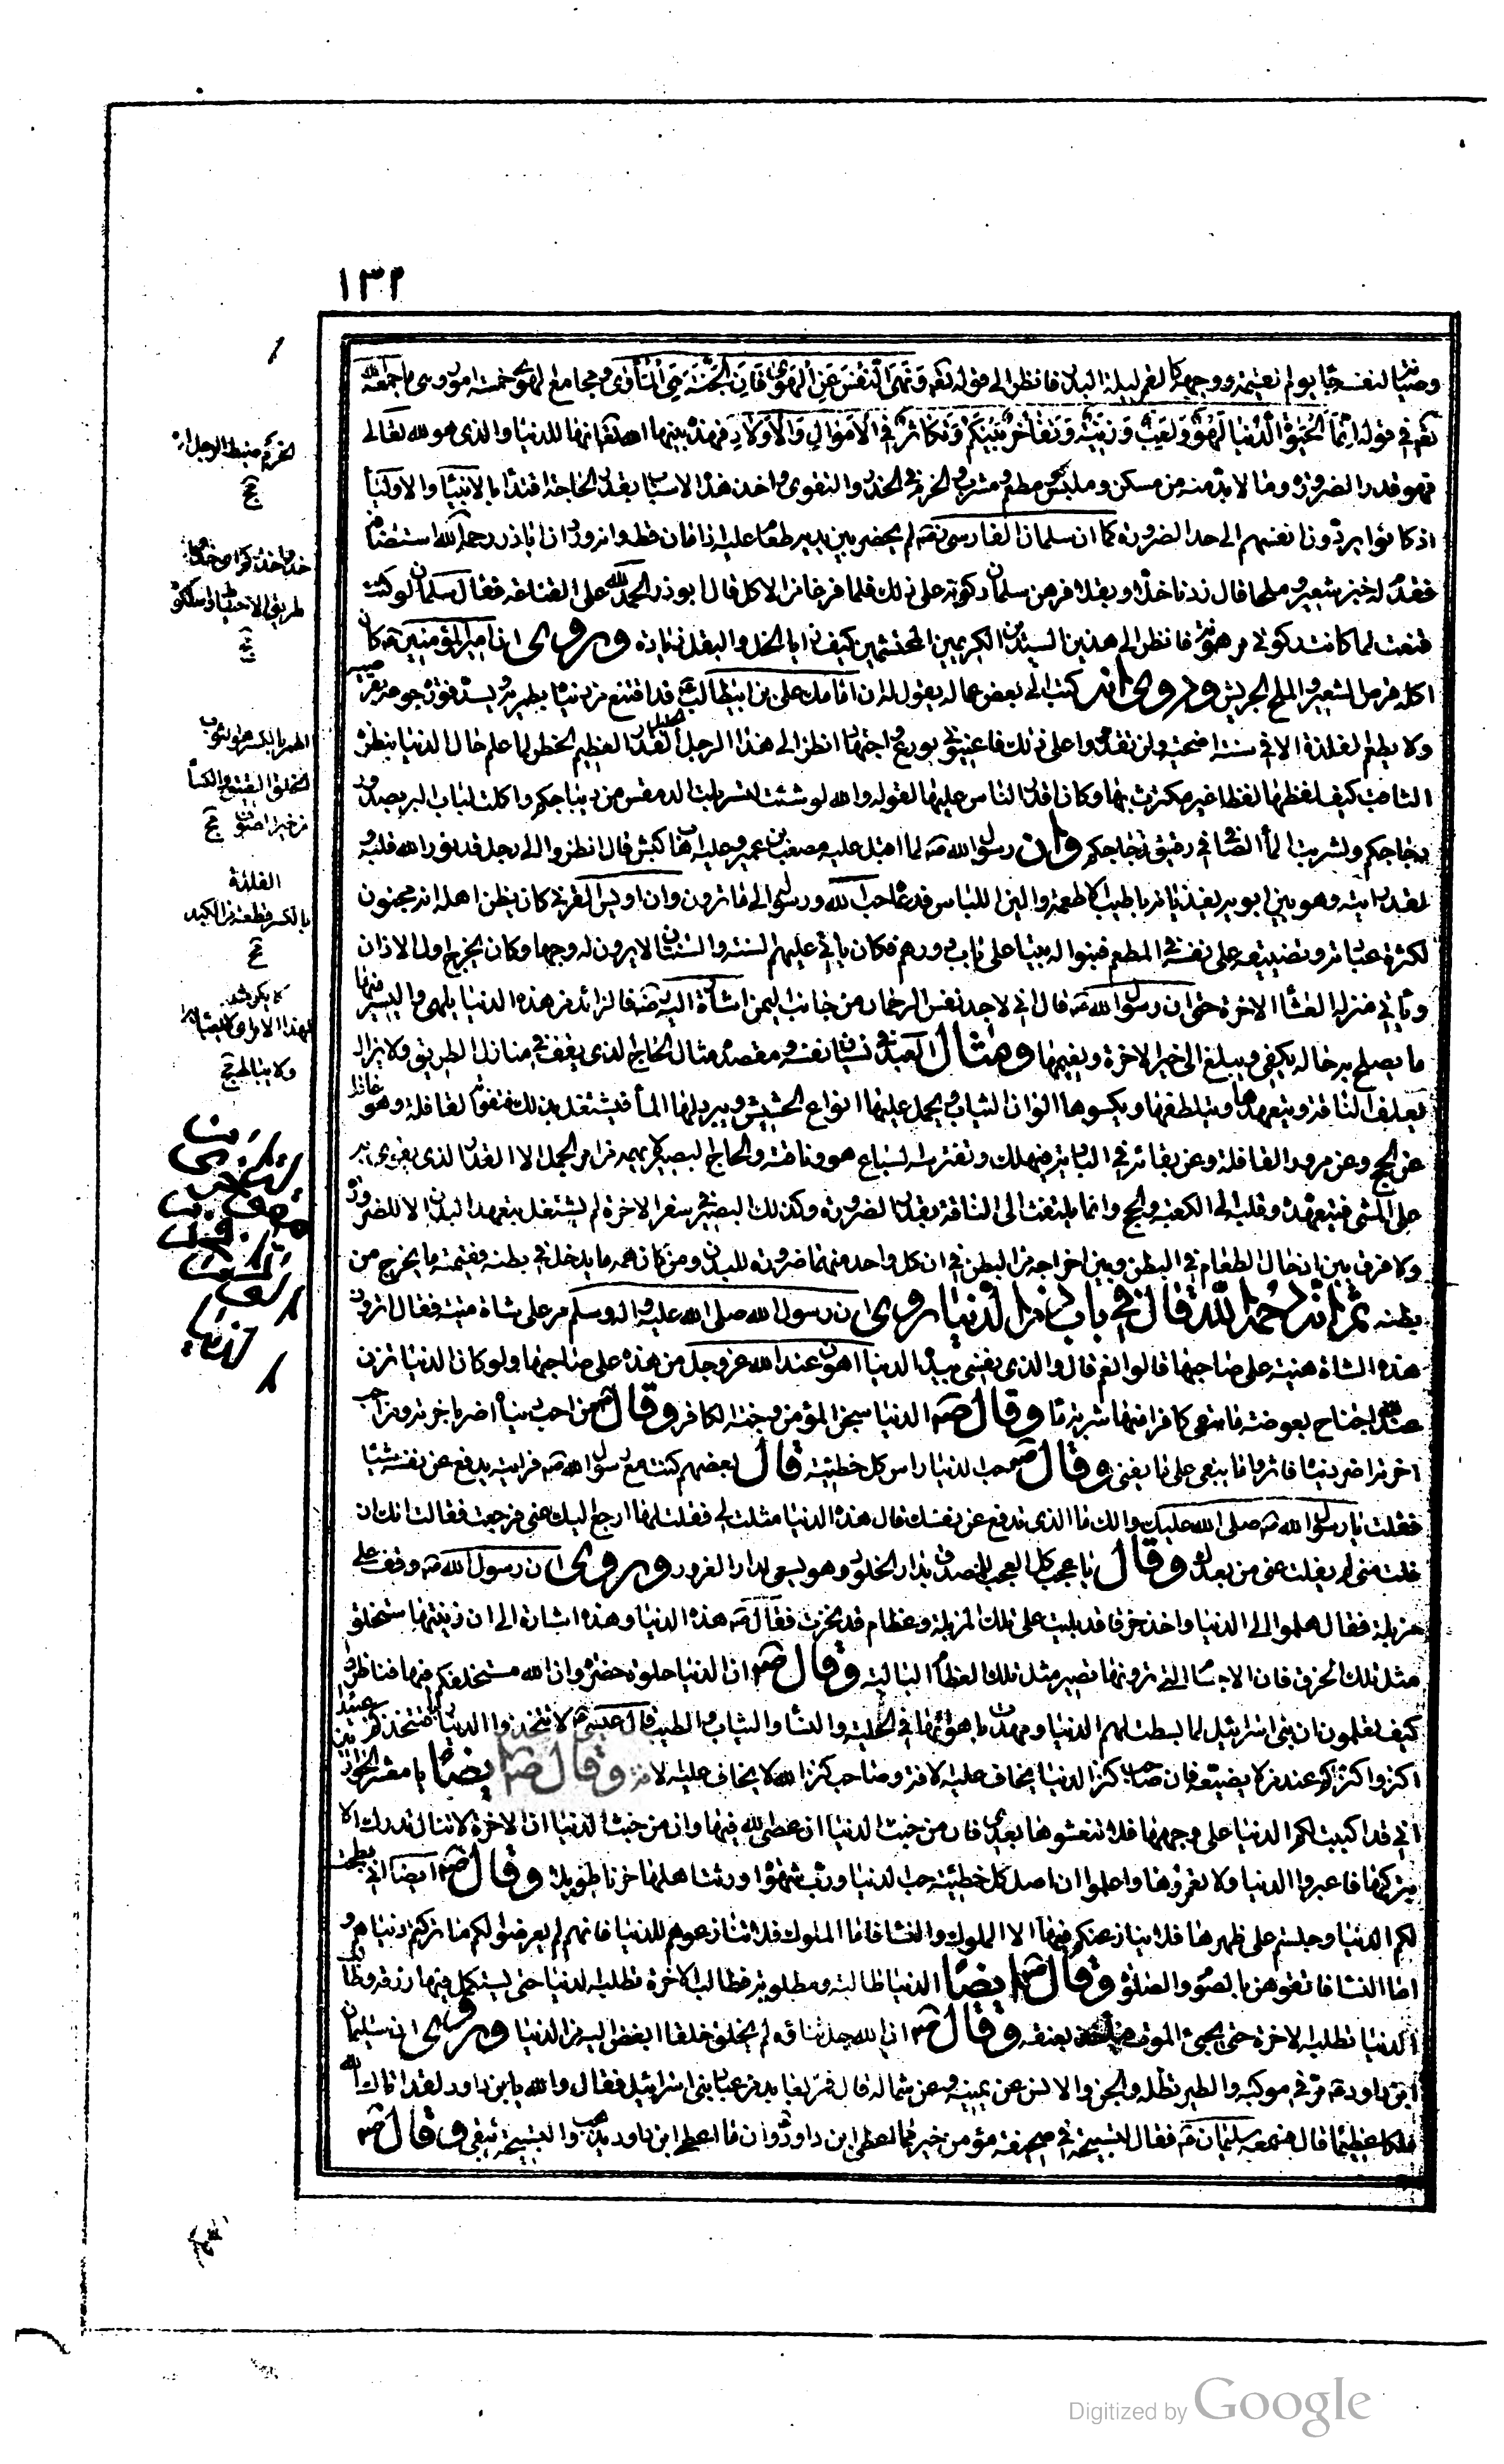 ١٣٢
تعم في قوله انما الحيوة الدنيا لهو ولعب وزينة وتفاخر بينكم وتكاثر في الاموال والاولاد فهذه بينها والذى هو لله تعالى
فهو قدر الضرورة وما لا بد منه من مسكن وملبس ومطعم ومشرب والحزم في الحذر والتقوى واخذ هذه الاسباب بقدر الحاجة اقتداء بالانبياء والاولياء
اذ كانوا يردون انفسهم الى حد الضرورة كما ان سلمان الفارسي لم يحضر بين يديه طعاما عليه اذامان قط وانه روى ان اباذر رحمه الله استضافه
فقدم له خبز شعير وملحا فقال زدنا خلا وبقلا فرهن سلمان ركوته على ذلك فلما فرغا من الاكل قال ابوذر الحمد لله على القناعة فقال سلمان لو كنت
قنعت لما كانت ركوتى مرهونة فانظر الى هذين السيدين الكريمين المحتشمين كيف رايا الخل والبقل زيادة وروى ان امير المؤمنين كان
اكله من الشعير والملح الجريش وروى انه كتب الى بعض عماله يقول له ان امامك على بن ابيطالب قد اقتنع من دنياه بطمريه ويسد فورة جوعه بقرصيه
ولا يطعم الفلذة الا في سنة اضحية ولن تقدروا على ذلك فاعينونى بورع واجتهاد انظر الى هذا الرجل الجليل القدر العظيم الخطر لما علم حال الدنيا بنظره
الثاقب كيف لفظها لفظا غير مكترث بها وكان اقدر الناس عليها لقوله والله لو شئت لتسربلت الدمقس من ديباجكم واكلت لباب البر بصدور
دجاجكم ولشربت الماء الصافي في رقيق زجاجكم وان رسول الله ص لما اقبل عليه مصعب بن عمير وعليه اهاب كبش قال انظروا الى رجل قد نور الله قلبه
لقد رايته وهو بين ابويه يغذيانه باطيب الاطعمة والين اللباس فدعاه حب الله ورسوله الى ما ترون وان اويس القرني كان يظن اهله انه مجنون
لكثرة عباداته وتضييقه على نفسه في المطعم فبنوا له بيتا على باب دورهم فكان ياتي عليهم السنة والسنتان لا يرون له وجها وكان يخرج اول الاذان
وياتي منزله العشاء الاخرة حتى ان رسول الله ص قال انى لاجد نفس الرحمان من جانب اليمن اشارة اليه فالزائد من هذه الدنيا يلهى واليسير منها
ما يصلح به حاله يكفي ويبلغ الى خير الاخرة ونعيمها ومثال العبد في نسيانه نفسه ومقصده مثال الحاج الذى يقف في منازل الطريق ولا يزال
يعلف الناقة ويتعهدها ويتلطفها ويكسوها الوان الثياب ويحمل عليها انواع الحشيش ويبرد لها الماء فيشتغل بذلك فتفوته القافلة وهو غافل
عن الحج وعن مرور القافلة وعن بقائه في البادية فيهلك وتفترسه السباع هو وناقته والحاج البصير لا يهمه من امر الجمل الا القدر الذى يقوى به
على المشى فيتعهده وقلبه الى الكعبة والحج وانما يلتفت الى الناقة بقدر الضرورة وكذلك البصير في سفر الاخرة لم يشتغل بتعهد البدن الا للضرورة
ولا فرق بين ادخال الطعام في البطن وبين اخراجه من البطن في ان كل واحد منهما ضرورة للبدن ومن كان همه ما يدخل في بطنه فقيمته ما يخرج من
بطنه ثم انه رحمه الله قال في باب ذم الدنيا روى ان رسول الله صلى الله عليه واله وسلم مر على شاة ميتة فقال اترون
هذه الشاة هينة على صاحبها قالوا نعم قال والذى نفسي بيده الدنيا اهون عند الله عز وجل من هذه على صاحبها ولو كان الدنيا تزن
عند الله جناح بعوضة ما سقى كافرا منها شربة ماء وقال ص الدنيا سجن المؤمن وجنة الكافر وقال ص من احب دنياه اضر باخرته ومن احب
اخرته اضر بدنياه فاثروا ما يبقى على ما يفنى وقال ص حب الدنيا راس كل خطيئة قال بعضهم كنت مع رسول الله ص فرايته يدفع عن نفسه شيئا
فقلت يا رسول الله صلى الله عليك والك ما الذى تدفع عن نفسك قال هذه الدنيا مثلت لى فقلت لها ارجع اليك عنى فرجعت فقالت انك ان
فلت منى لم يفلت عنى من بعدك وقال يا عجبا كل العجب للمصدق بدار الخلود وهو يسعى لدار الغرور وروى ان رسول الله ص وقف على
مزبلة فقال هلموا الى الدنيا واخذ خرقا قد بليت على تلك المزبلة وعظام قد نخرت فقال ص هذه الدنيا وهذه اشارة الى ان زينتها ستخلق
مثل تلك الخرق فان الاجسام التى ترونها تصير مثل تلك العظام البالية وقال ص ان الدنيا حلوة خضرة وان الله مستخلفكم فيها فناظر
كيف تعملون ان بنى اسرائيل لما بسطت لهم الدنيا ومهدت باهوائها في الحلية والنساء والثياب والطيب قال عيسى لا تتخذوا الدنيا ربا فتتخذكم عبيدا
اكنزوا كنزكم عند من لا يضيعه فان صاحب كنز الدنيا يخاف عليه الافة وصاحب كنز الله لا يخاف عليه الافة وقال ايضا يا معشر الحواريين
انى قد اكببت لكم الدنيا على وجهها فلا تنعشوها بعدى فان من خبث الدنيا ان عصى الله فيها وان من خبث الدنيا ان الاخرة لا تنال ولا تدرك الا
بتركها فاعبروا الدنيا ولا تعمروها واعلموا ان اصل كل خطيئة حب الدنيا ورب شهوة اورثت اهلها حزنا طويلا وقال ايضا انى بطحت
لكم الدنيا وجلستم على ظهرها فلا ينازعنكم فيها الا الملوك والنساء فاما الملوك فلا تنازعوهم للدنيا فانهم لم يعرضوا لكم ما تركتم دنياهم و
اما النساء فاتقوهن بالصوم والصلوة وقال ايضا الدنيا طالبة ومطلوبة فطالب الاخرة تطلبه الدنيا حتى يستكمل فيها رزقه وطالب
الدنيا تطلبه الاخرة حتى يجىء الموت فياخذ بعنقه وقال ص ان الله جل ثناؤه لم يخلق خلقا ابغض اليه من الدنيا وروى ان سليمان
ابن داود مر في موكبه والطير تظله والجن والانس عن يمينه وعن شماله قال فمر بعابد من عباد بنى اسرائيل فقال والله يا بن داود لقد اتاك الله
ملكا عظيما قال فسمعه سليمان فقال لتسبيحة في صحيفة مؤمن خير مما اعطى ابن داود وان ما اعطى ابن داود يذهب والتسبيحة تبقى وقال ص
الفلذة
بالكسر قطعة من الكبد
Digitized by Google